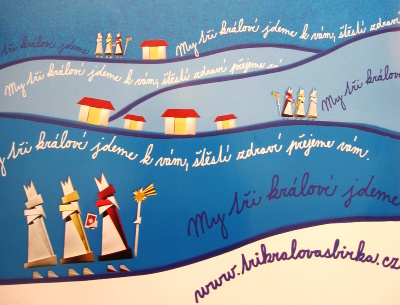 My tři králové jdeme
My tři králové jdeme k vám, štěstí zdraví
My tři králové jdeme k vám, štěstí zdraví přejeme vám
My tři králo
y tři králové jdeme k vám, štěstí zdraví přejeme vám.
My tři králové jdeme
www.trikralovasbirka.cz